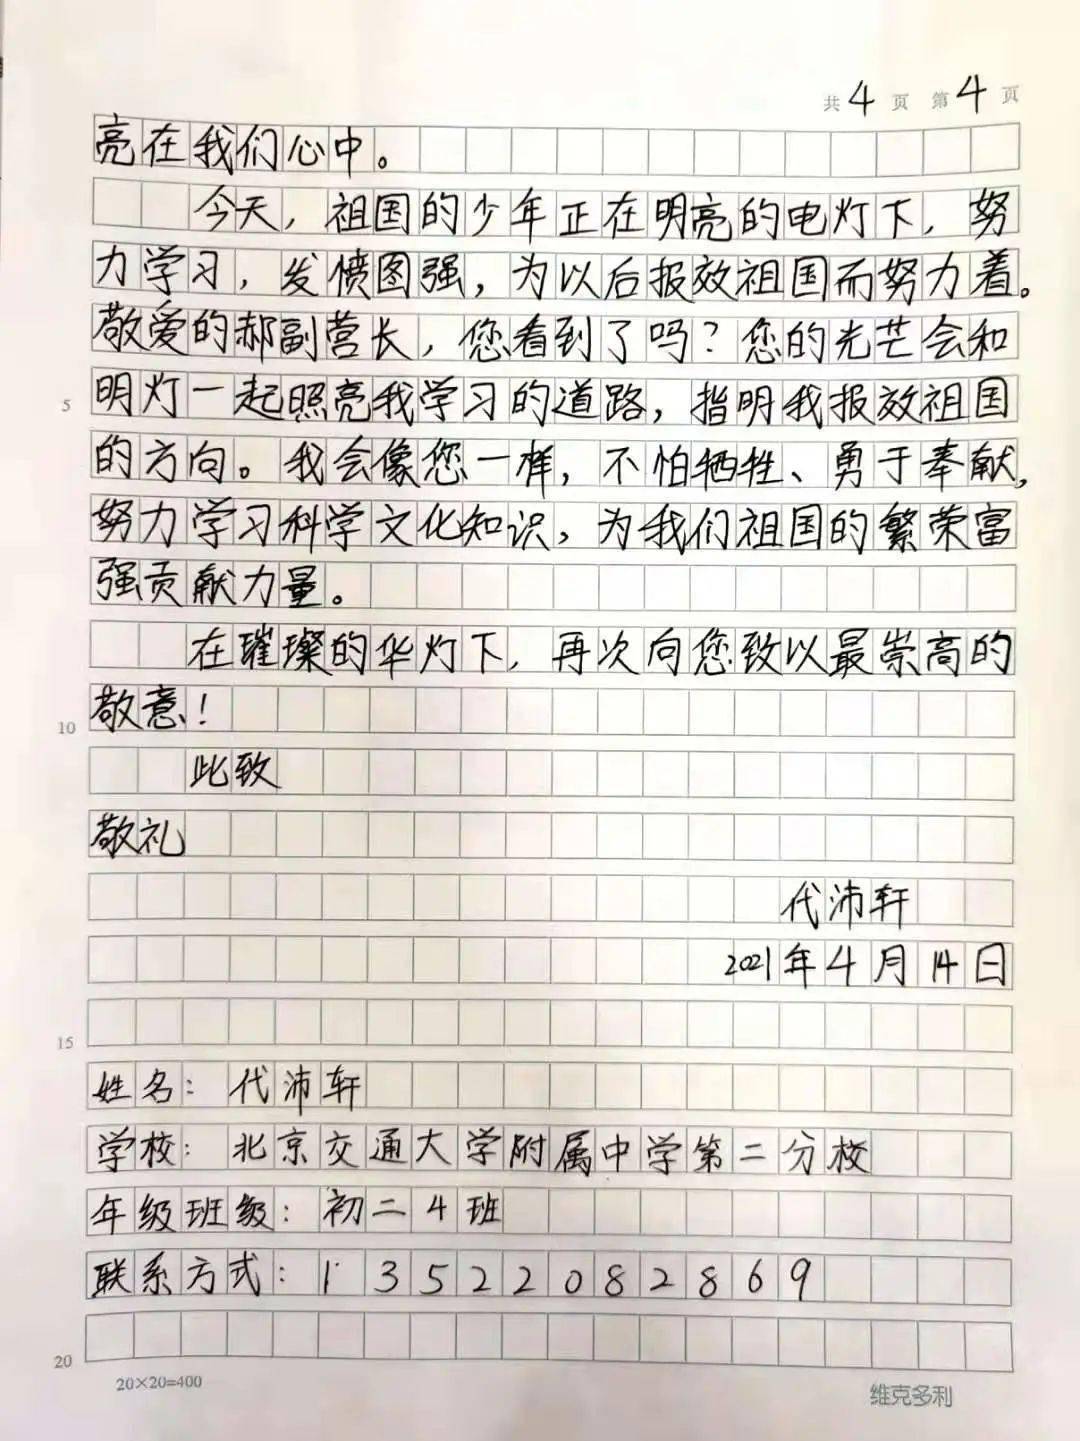 共4页 第4页
亮在我们心中。
今天，祖国的少年正在明亮的电灯下，努
力学习，发愤图强，为以后报效祖国而努力着。
敬爱的郝副营长，您看到了吗？您的光芒会和
5 明灯一起照亮我学习的道路，指明我报效祖国
的方向。我会像您一样，不怕牺牲、勇于奉献，
努力学习科学文化知识，为我们祖国的繁荣富
强贡献力量。
在璀璨的华灯下，再次向您致以最崇高的
10 敬意！
此致
敬礼
代沛轩
2021年4月14日
15
姓名：代沛轩
学校：北京交通大学附属中学第二分校
年级班级：初二4班
联系方式：13522082869
20
20×20=400 维克多利